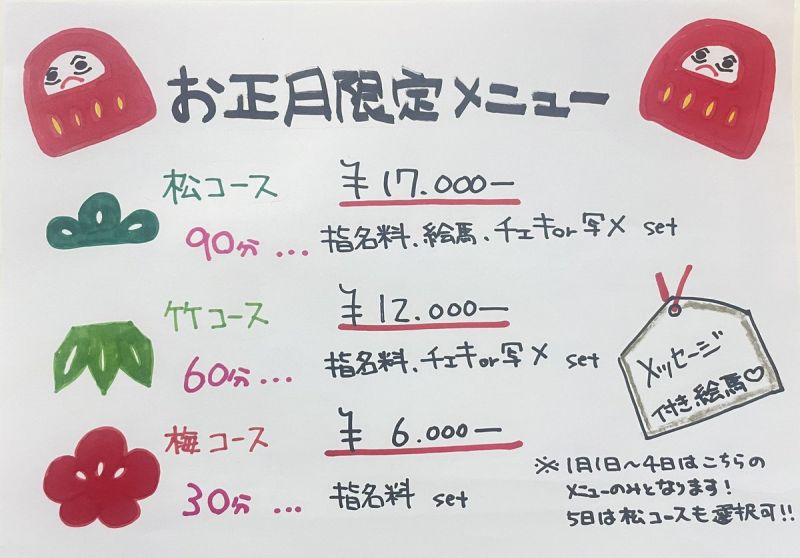 お正月限定メニュー
松コース ¥17.000ー
90分… 指名料、絵馬、チェキor写メ set
竹コース ¥12.000ー
60分… 指名料、チェキor写メ set
メッセージ
付き絵馬♡
梅コース ¥6.000ー
30分… 指名料 set
※1月1日〜4日はこちらの
メニューのみとなります!
5日は松コースも選択可!!